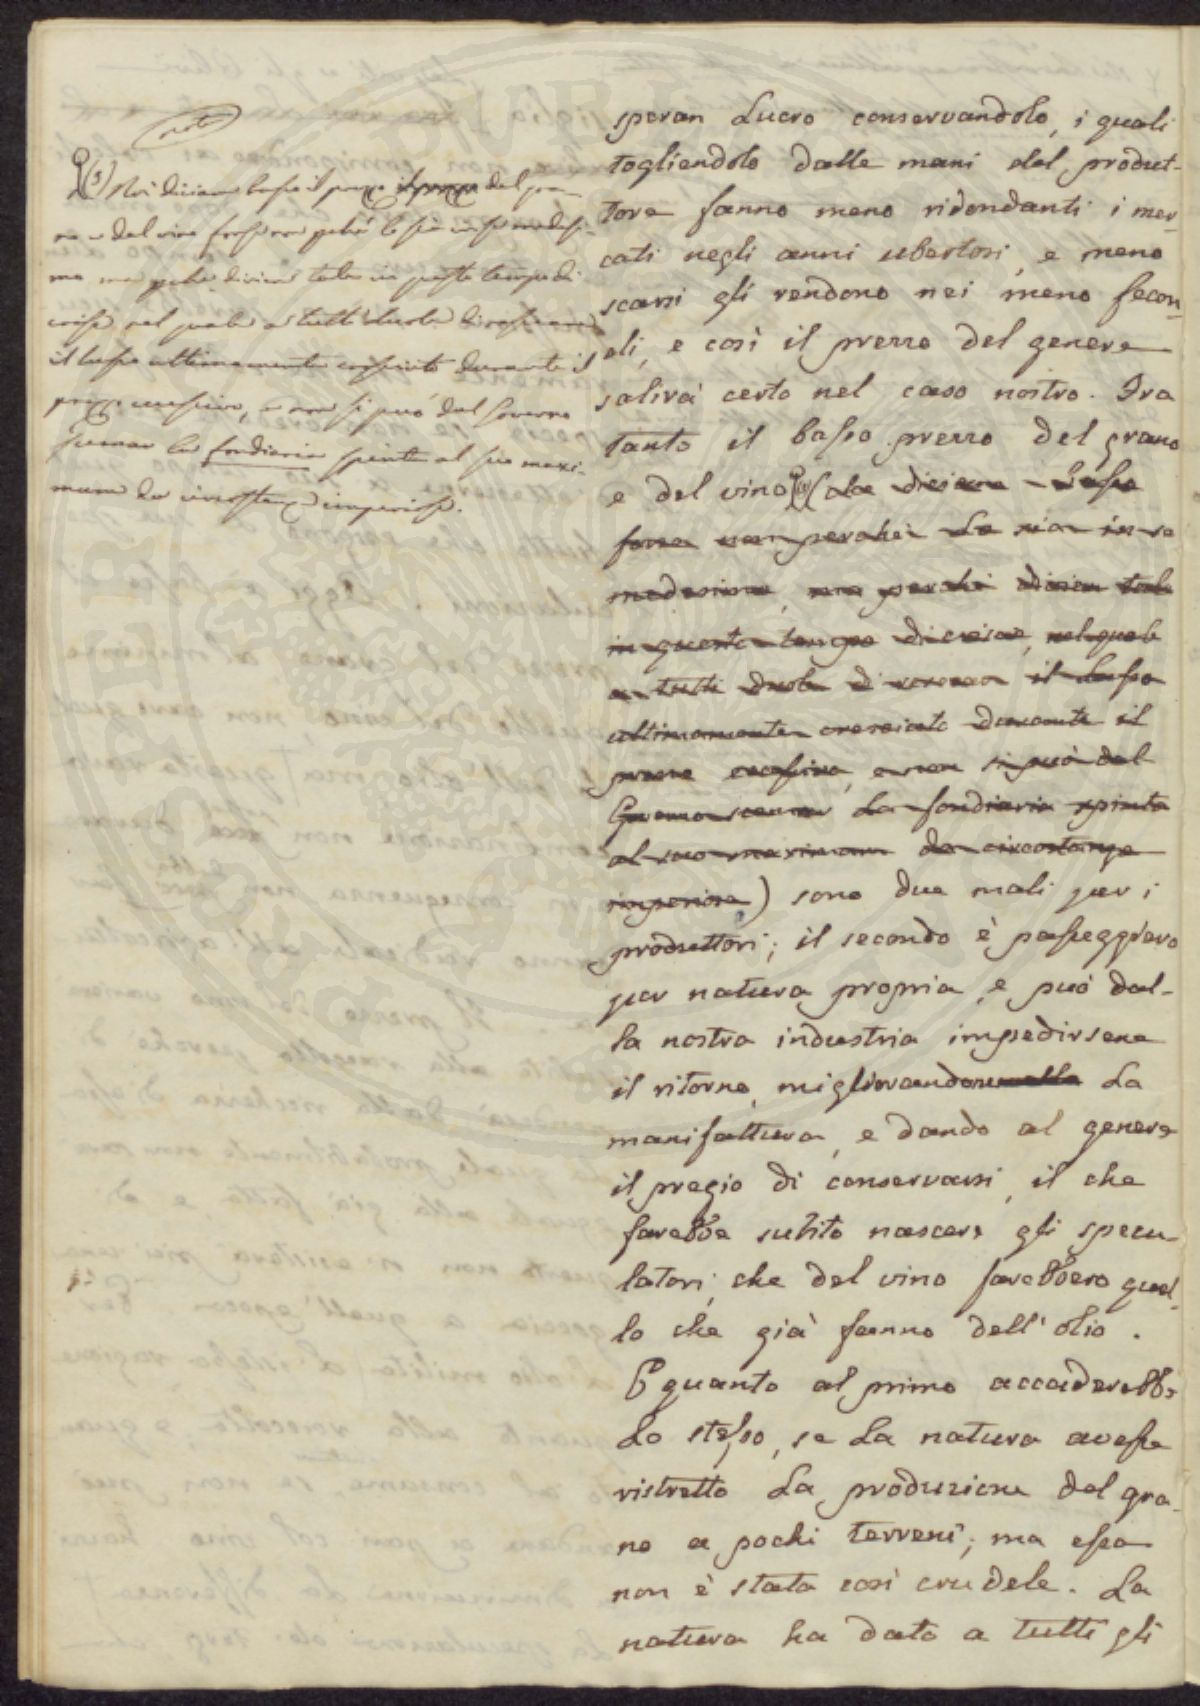 nota
(5) Noi diciam basso il prezzo il prezzo del gra-
no e del vino forse non perché lo sia in se medesi-
mo ma perché divien tale in questo tempo di
crisi nel quale a tutti duole di
il lusso ultimamente cresciuto durante il
prezzo eccessivo, e non si può dal Governo
scemar la fondiaria spinta al suo maxi-
mum da circostanze imperiose.
speran Lucro conservandolo, i quali
togliendolo dalle mani del produt-
tore fanno meno ridondanti i mer-
cati negli anni ubertosi, e meno
scarsi gli rendono nei meno fecon-
di, e così il prezzo del genere
salirà certo nel caso nostro. Fra
tanto il basso prezzo del grano
e del vino (5) (Lo diciam basso
forse non perché Lo sia in se
medesimo, ma perché divien tale
in questo tempo di crise, nel quale
a tutti duole di il Lusso
ultimamente cresciuto durante il
prezzo eccessivo, e non si può dal
Governo scemar La fondiaria spinta
al suo maximum da circostanze
imperiose) sono due mali per i
produttori; il secondo è passeggiero
per natura propria, e può dal-
la nostra industria impedirsene
il ritorno, migliorandone La
manifattura, e dando al genere
il pregio di conservarsi, il che
farebbe subito nascere gli specu-
latori, che del vino farebbero quel-
lo che già fanno dell'olio.
E quanto al primo accaderebbe
Lo stesso, se La natura avesse
ristretto La produzione del gra-
no a pochi terreni; ma essa
non è stata così crudele. La
natura ha dato a tutti gli